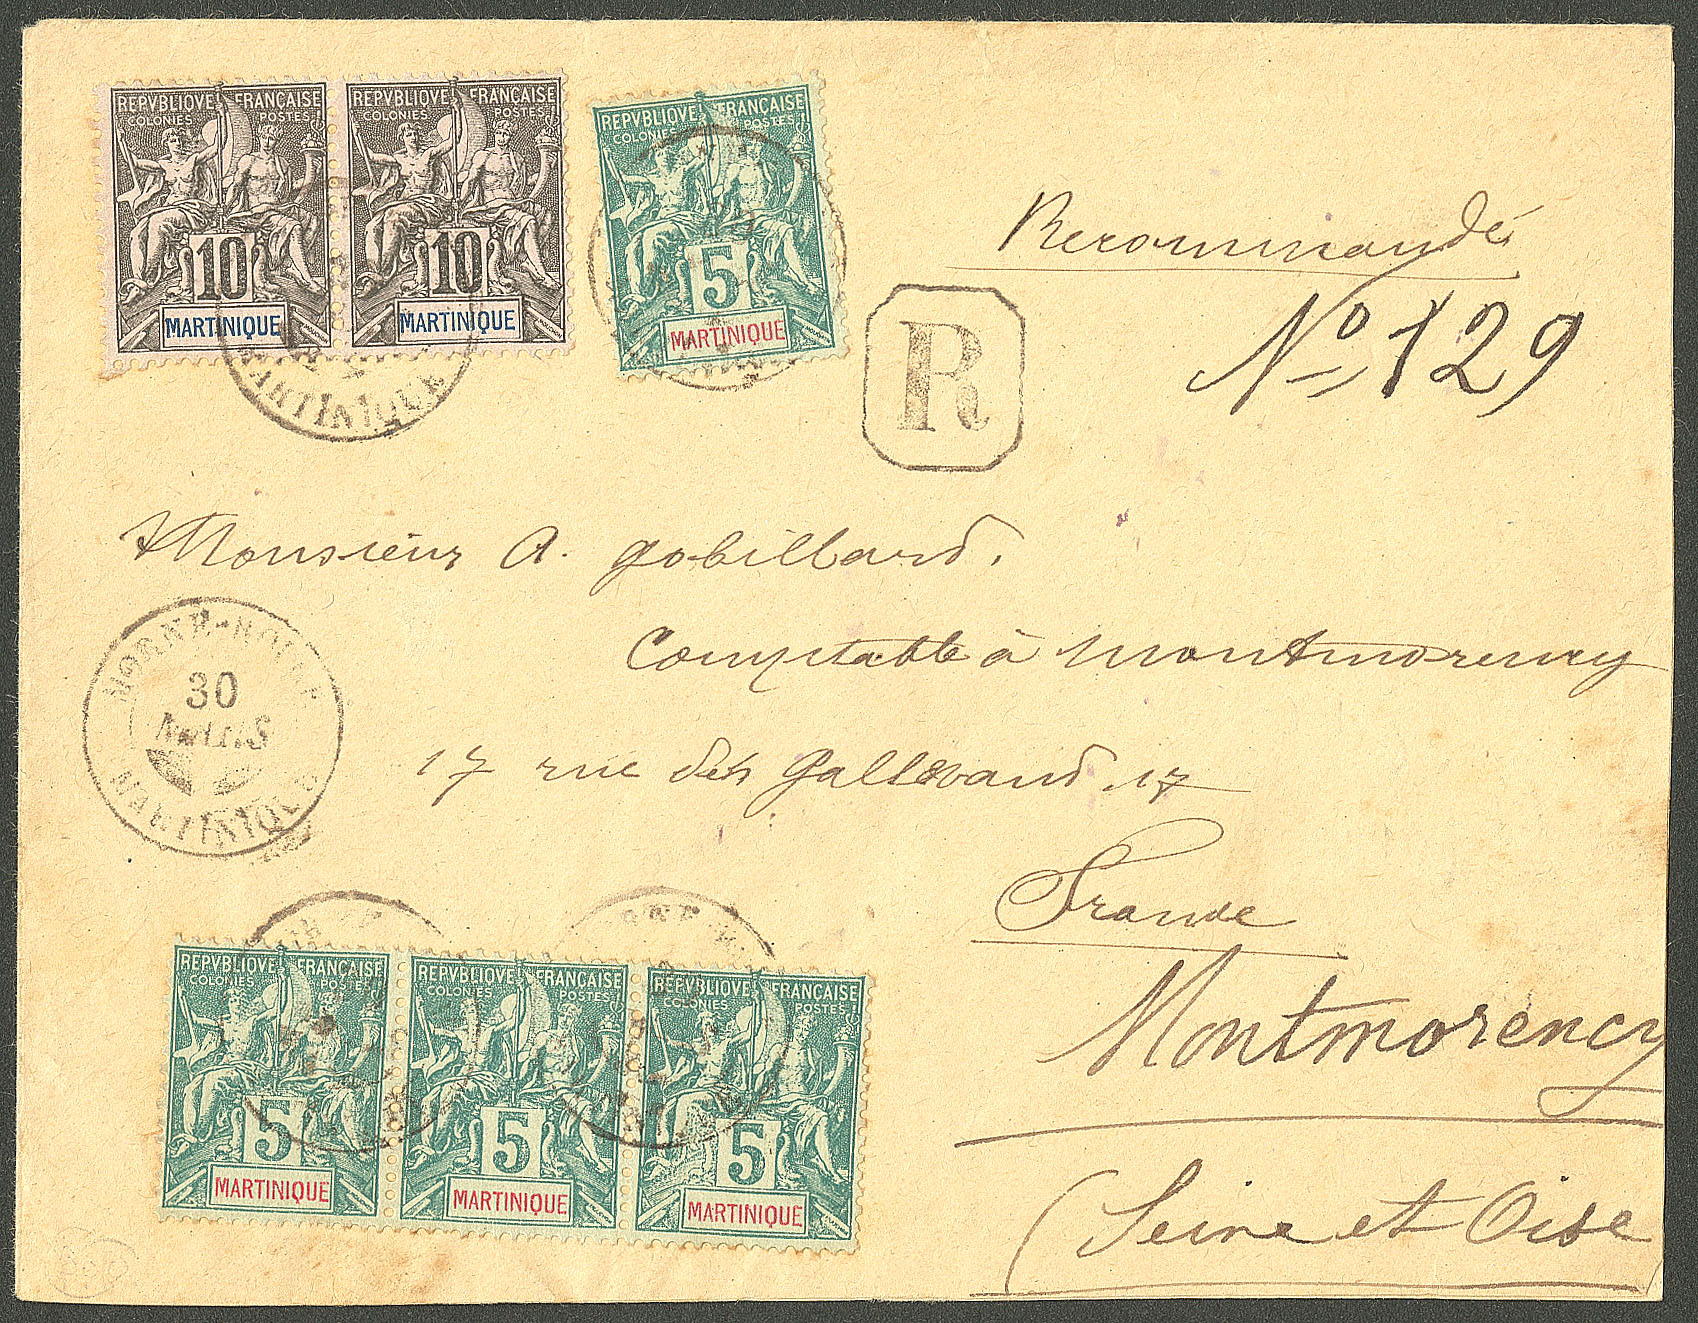 REPVBLIQVE FRANÇAISE
COLONIES POSTES
10
MARTINIQUE
REPVBLIQVE FRANÇAISE
COLONIES POSTES
10
MARTINIQUE
REPVBLIQVE FRANÇAISE
COLONIES POSTES
5
MARTINIQUE
MARTINIQUE
R
Recommandés
No 129
Monsieur A. Gobillard.
Comptable à Montmorency
17 rue des 17
MORNE-ROUGE
30
MARS
MARTINIQUE
France
Montmorency
(Seine et Oise
REPVBLIQVE FRANÇAISE
COLONIES POSTES
5
MARTINIQUE
REPVBLIQVE FRANÇAISE
COLONIES POSTES
5
MARTINIQUE
REPVBLIQVE FRANÇAISE
COLONIES POSTES
5
MARTINIQUE